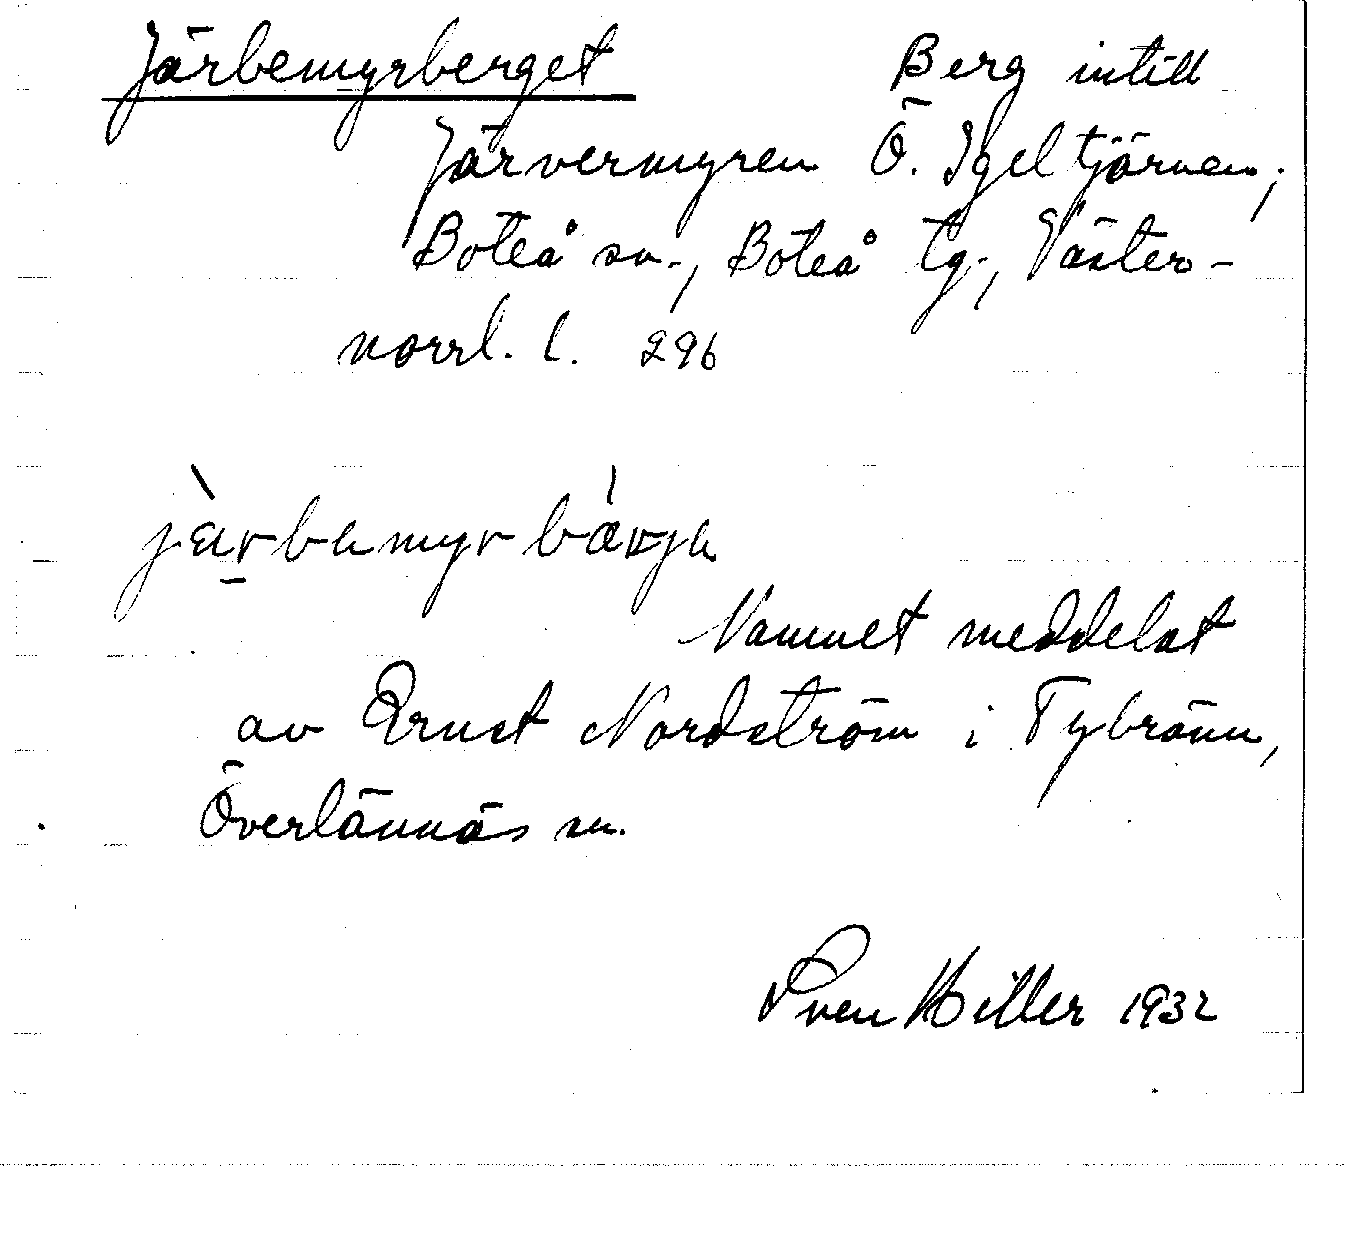 Järbemyrberget Berg intill
Järvermyren Ö. Igeltjärnen,
Boteå sn., Boteå tg., Väster-
norrl. l. 296
jàrbamyrbárja
Namnet meddelat
av Ernst Nordström i Tybränn,
Överlännäs sn.
Sven Hiller 1932